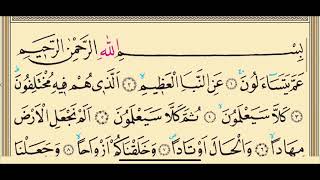 بِسْمِ اللهِ الرَّحْمٰنِ الرَّحِيْمِ
عَمَّ يَتَسَآءَلُوْنَ ۝١ عَنِ النَّبَاِ الْعَظِيْمِ ۝٢ الَّذِىْ هُمْ فِيْهِ مُخْتَلِفُوْنَ
۝٣ كَلَّا سَيَعْلَمُوْنَ ۝٤ ثُمَّ كَلَّا سَيَعْلَمُوْنَ ۝٥ اَلَمْ نَجْعَلِ الْاَرْضَ
مِهَادًا ۝٦ وَّالْجِبَالَ اَوْتَادًا ۝٧ وَّخَلَقْنٰكُمْ اَزْوَاجًا ۝٨ وَّجَعَلْنَا